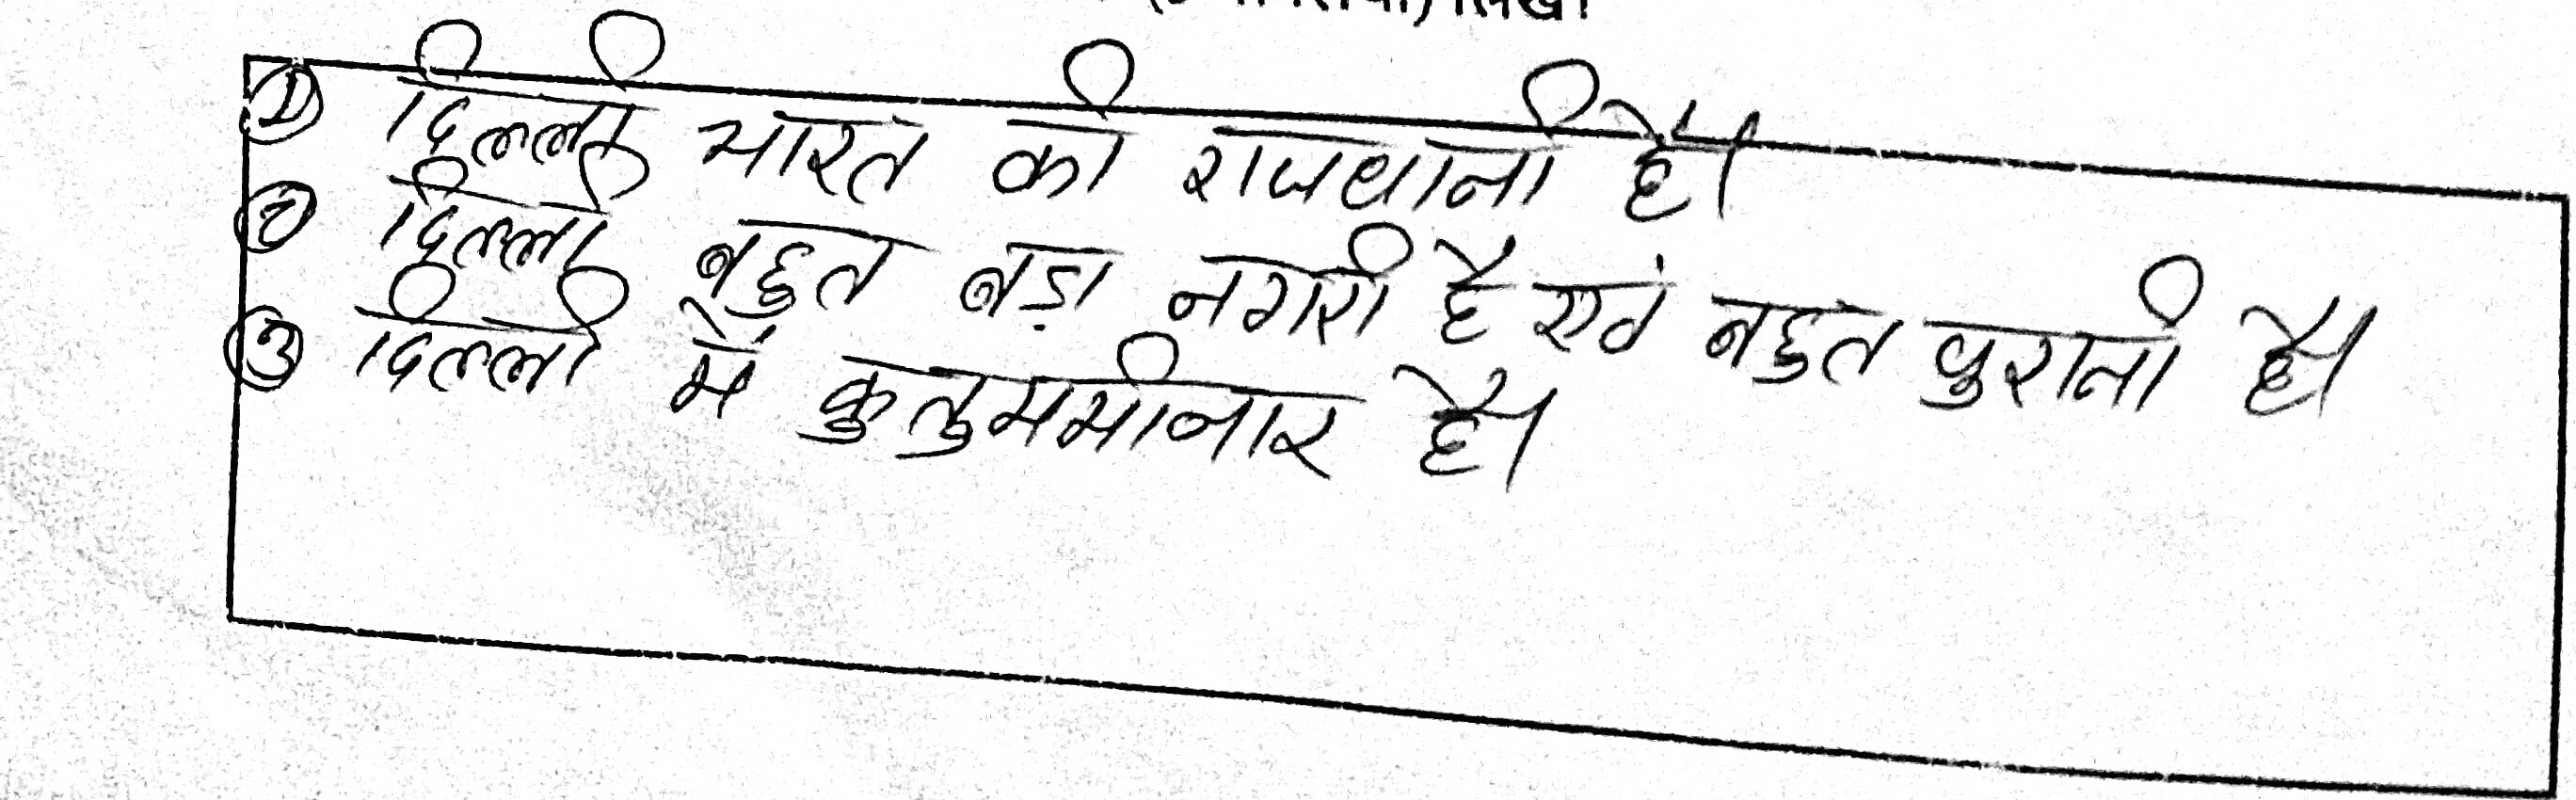 लिखा
① दिल्ली भारत की राजधानी है।
② दिल्ली बहुत बड़ा नगरी है एवं बहुत पुरानी है।
③ दिल्ली में कुतुममीनार है।